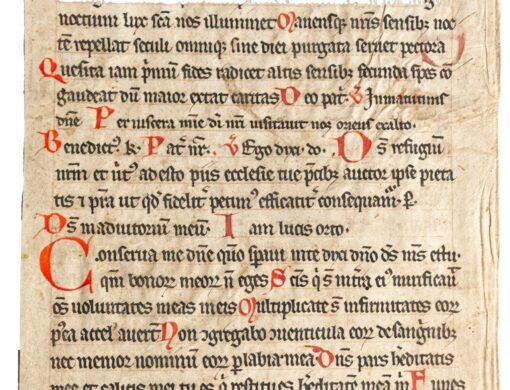 noctium lux scã nos illuminet Manensqz nr̃is sensibz noc
tẽ repellat seculi omniuqz sine diei purgata seruet pectora
Quesita iam pr̃mũ fides radicet altis sensibz secunda spes cõ
gaudeat dũ maior extat caritas Deo pat̃ ℣ In matutinis
dñe Per uiscera mĩe dĩ nr̃i uisitauit nos oriens exalto.
Benedict9 k. Pat̃ nr̃. ℣ Ego dixi. do. Ds̃ refugiũ
nr̃m et uirt9 adesto piis ecclesie tue p̃cibz auctor ipse pieta
tis ⁊ p̃ra ut qd̃ fidelit̃ petim9 efficacit̃ consequam̃. P.
Ds̃ in adiutoriũ meũ. Iam lucis orto.
Conserua me dñe qm̃ speraui in te dixi dño ds̃ ms̃ es tu.
qm̃ bonorꝝ meorꝝ ñ eges Scis q̃ s̃ in tr̃a ei9 mirificauit̃
oẽs uoluntates meas in eis Multiplicate s̃ infirmitates eorꝝ
p9ea accel̃auert̃ Non ↄgregabo ↄuenticula eorꝝ de sanguinibz
nec memor nominũ eorꝝ ꝑ labia mea Dñs pars heditatis
mee et calicis mei tu es q̃ restitues heditatẽ meã m̃ Funes